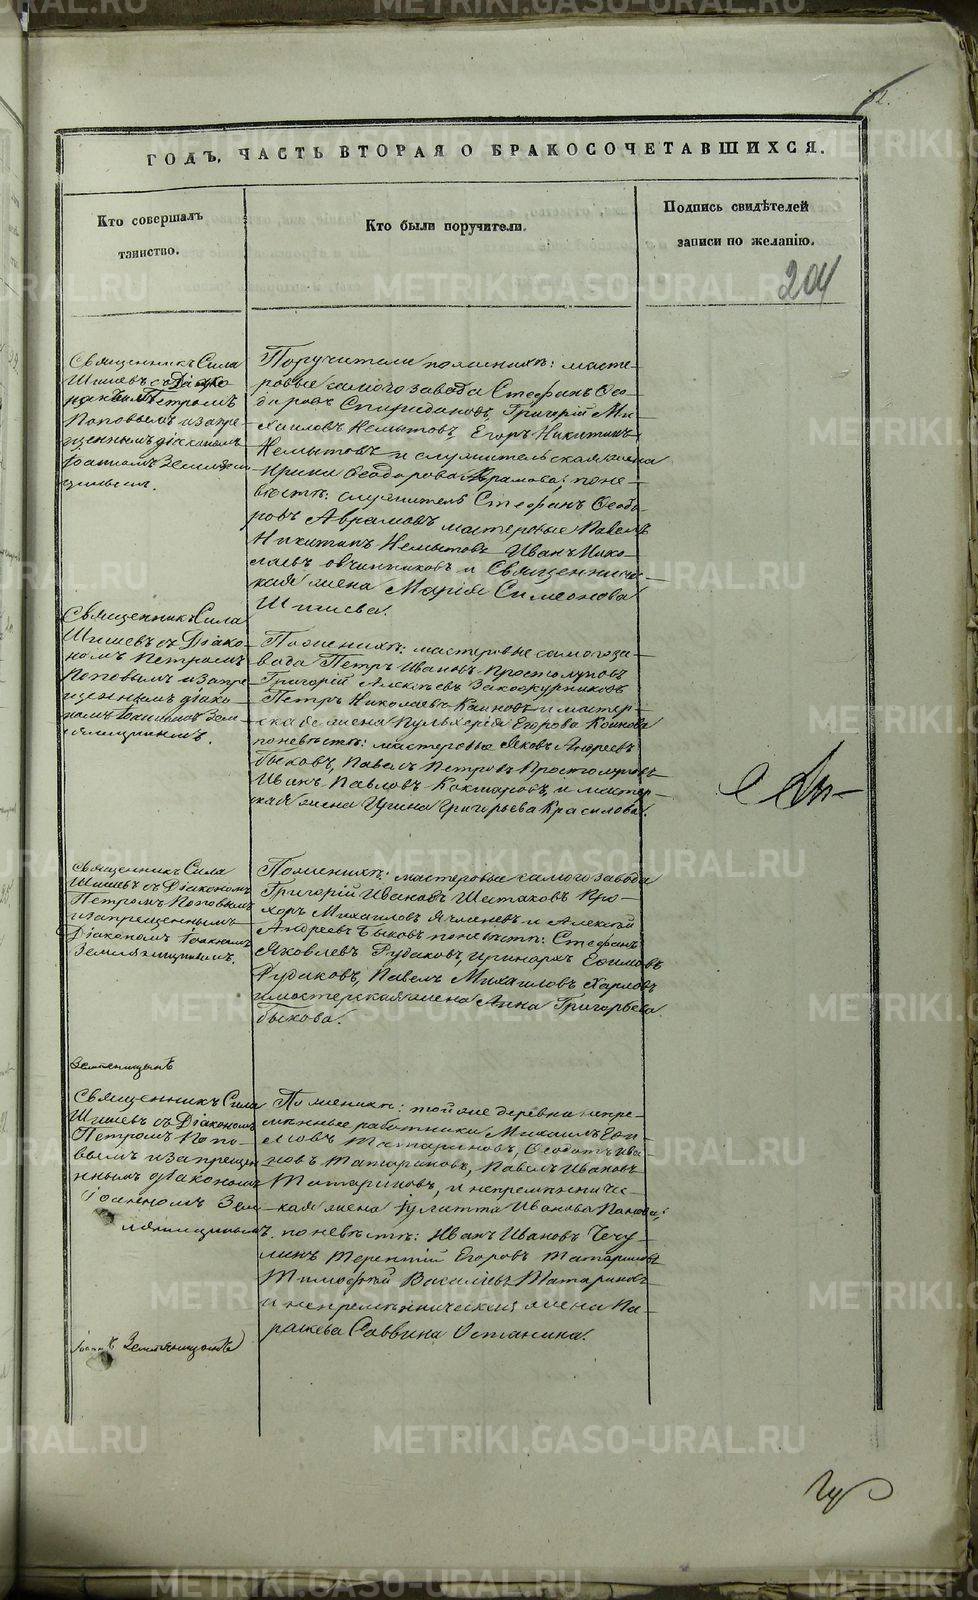 62.
ГОДЪ, ЧАСТЬ ВТОРАЯ О БРАКОСОЧЕТАВШИХСЯ.
Кто совершалъ
таинство.
Кто были поручители.
Подпись свидѣтелей
записи по желанію.
204
Священникъ Сила
Шишевъ съ Діако-
номъ Петромъ
Поповымъ и запре-
щеннымъ діакономъ
Іоанномъ Земляни-
цынымъ.
Поручители по женихѣ: масте-
ровые самого завода Стефанъ Ѳео-
доровъ Спиридоновъ, Григорій Ми-
хаиловъ Немытовъ, Егоръ Никитинъ
Немытовъ и служительская жена
Ирина Ѳеодорова Аврамова; по не-
вѣстѣ: служитель Стефанъ Ѳеодо-
ровъ Аврамовъ мастеровые Павелъ
Никитинъ Немытовъ Иванъ Нико-
лаевъ Овчинниковъ и Священниче-
ская жена Марія Симеонова
Шишева.
Священникъ Сила
Шишевъ съ Діако-
номъ Петромъ
Поповымъ и запре-
щеннымъ діако-
номъ Іоанномъ Зем-
ляницынымъ.
По женихѣ: мастеровые самого за-
вода Петръ Ивановъ Простолуповъ
Григорій Алексѣевъ Закожурниковъ
Петръ Николаевъ Коиновъ и мастер-
ская жена Пульхерія Егорова Коинова
по невѣстѣ: мастеровые Яковъ Андреевъ
Быковъ, Павелъ Петровъ Простолуповъ
Иванъ Павловъ Кокшаровъ, и мастер-
ская жена Ирина Григорьева Красилова.
Священникъ Сила
Шишевъ съ Діакономъ
Петромъ Поповымъ
и запрещеннымъ
Діакономъ Іоанномъ
Земляницынымъ.
По женихѣ: мастеровые самого завода
Григорій Ивановъ Шестаковъ Про-
хоръ Михаиловъ Ячменевъ и Алексѣй
Андреевъ Быковъ по невѣстѣ: Стефанъ
Яковлевъ Рудаковъ, Иринархъ Ефимовъ
Рудаковъ, Павелъ Михаиловъ Карповъ
и мастерская жена Анна Григорьева
Быкова.
Земляницынъ
Священникъ Сила
Шишевъ съ Діакономъ
Петромъ Попо-
вымъ и запрещен-
нымъ діакономъ
Іоанномъ Зем-
ляницынымъ.
По женихѣ: той же деревни непре-
мѣнные работники Михаилъ Ефи-
мовъ Татариновъ, Ѳедотъ Ива-
новъ Татариновъ, Павелъ Ивановъ
Татариновъ, и непремѣнниче-
ская жена Іулитта Иванова Панова;
по невѣстѣ: Иванъ Ивановъ Чечу-
линъ Терентій Егоровъ Татариновъ
Тимофей Васильевъ Татариновъ
и непремѣнническая жена Па-
раскева Саввина Останина.
Іоаннъ Земляницынъ